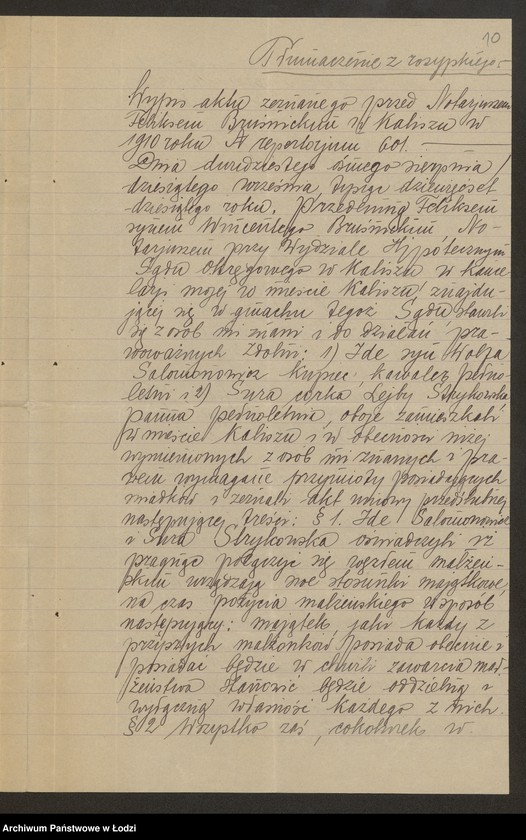 10
Tłumaczenie z rosyjskiego
Wypis aktu zeznanego przed Notarjuszem
Feliksem Bruśnickim w Kaliszu w
1910 roku № repertorjum 601.
Dnia dwudziestego ósmego sierpnia /
dziesiątego września, tysiąc dziewięćset
dziesiątego roku. Przedemną Feliksem
synem Wincentego Bruśnickim, No-
tarjuszem przy Wydziale Hypotecznym
Sądu Okręgowego w Kaliszu w kance
larji mojej w mieście Kaliszu, znajdu-
jącej się w gmachu tegoż Sądu stawili
się z osób mi znani i do działań pra-
womożnych zdolni: 1) Ide syn
Salomonowicz kupiec, kawaler pełno-
letni i 2) Sura córka Lejby Strykowska
panna pełnoletnia, oboje zamieszkali
w mieście Kaliszu i w obecności niżej
wymienionych z osób mi znanych i pra-
wem wymagane przymioty posiadających
świadków i zeznali akt umowy przedślubnej
następującej treści: § 1. Ide Salomonowicz
i Sura Strykowska oświadczyli iż
pragnąc połączyć się węzłem małżeń-
skim urządzają swe stosunki majątkowe
na czas pożycia małżeńskiego w sposób
następujący: majątek, jaki każdy z
przyszłych małżonków posiada obecnie i
posiadać będzie w chwili zawarcia mał-
żeństwa stanowić będzie oddzielną i
wyłączną własność każdego z nich.
§ 2 Wszystko zaś, cokolwiek w
Archiwum Państwowe w Łodzi